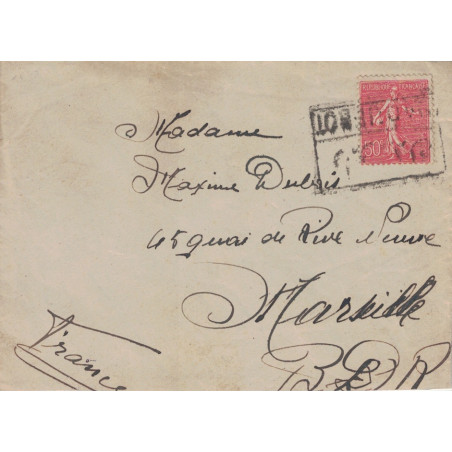 REPUBLIQUE FRANÇAISE
50c
Madame
Maxime Dubois
45 quai de Rive Neuve
Marseille
B D R
France